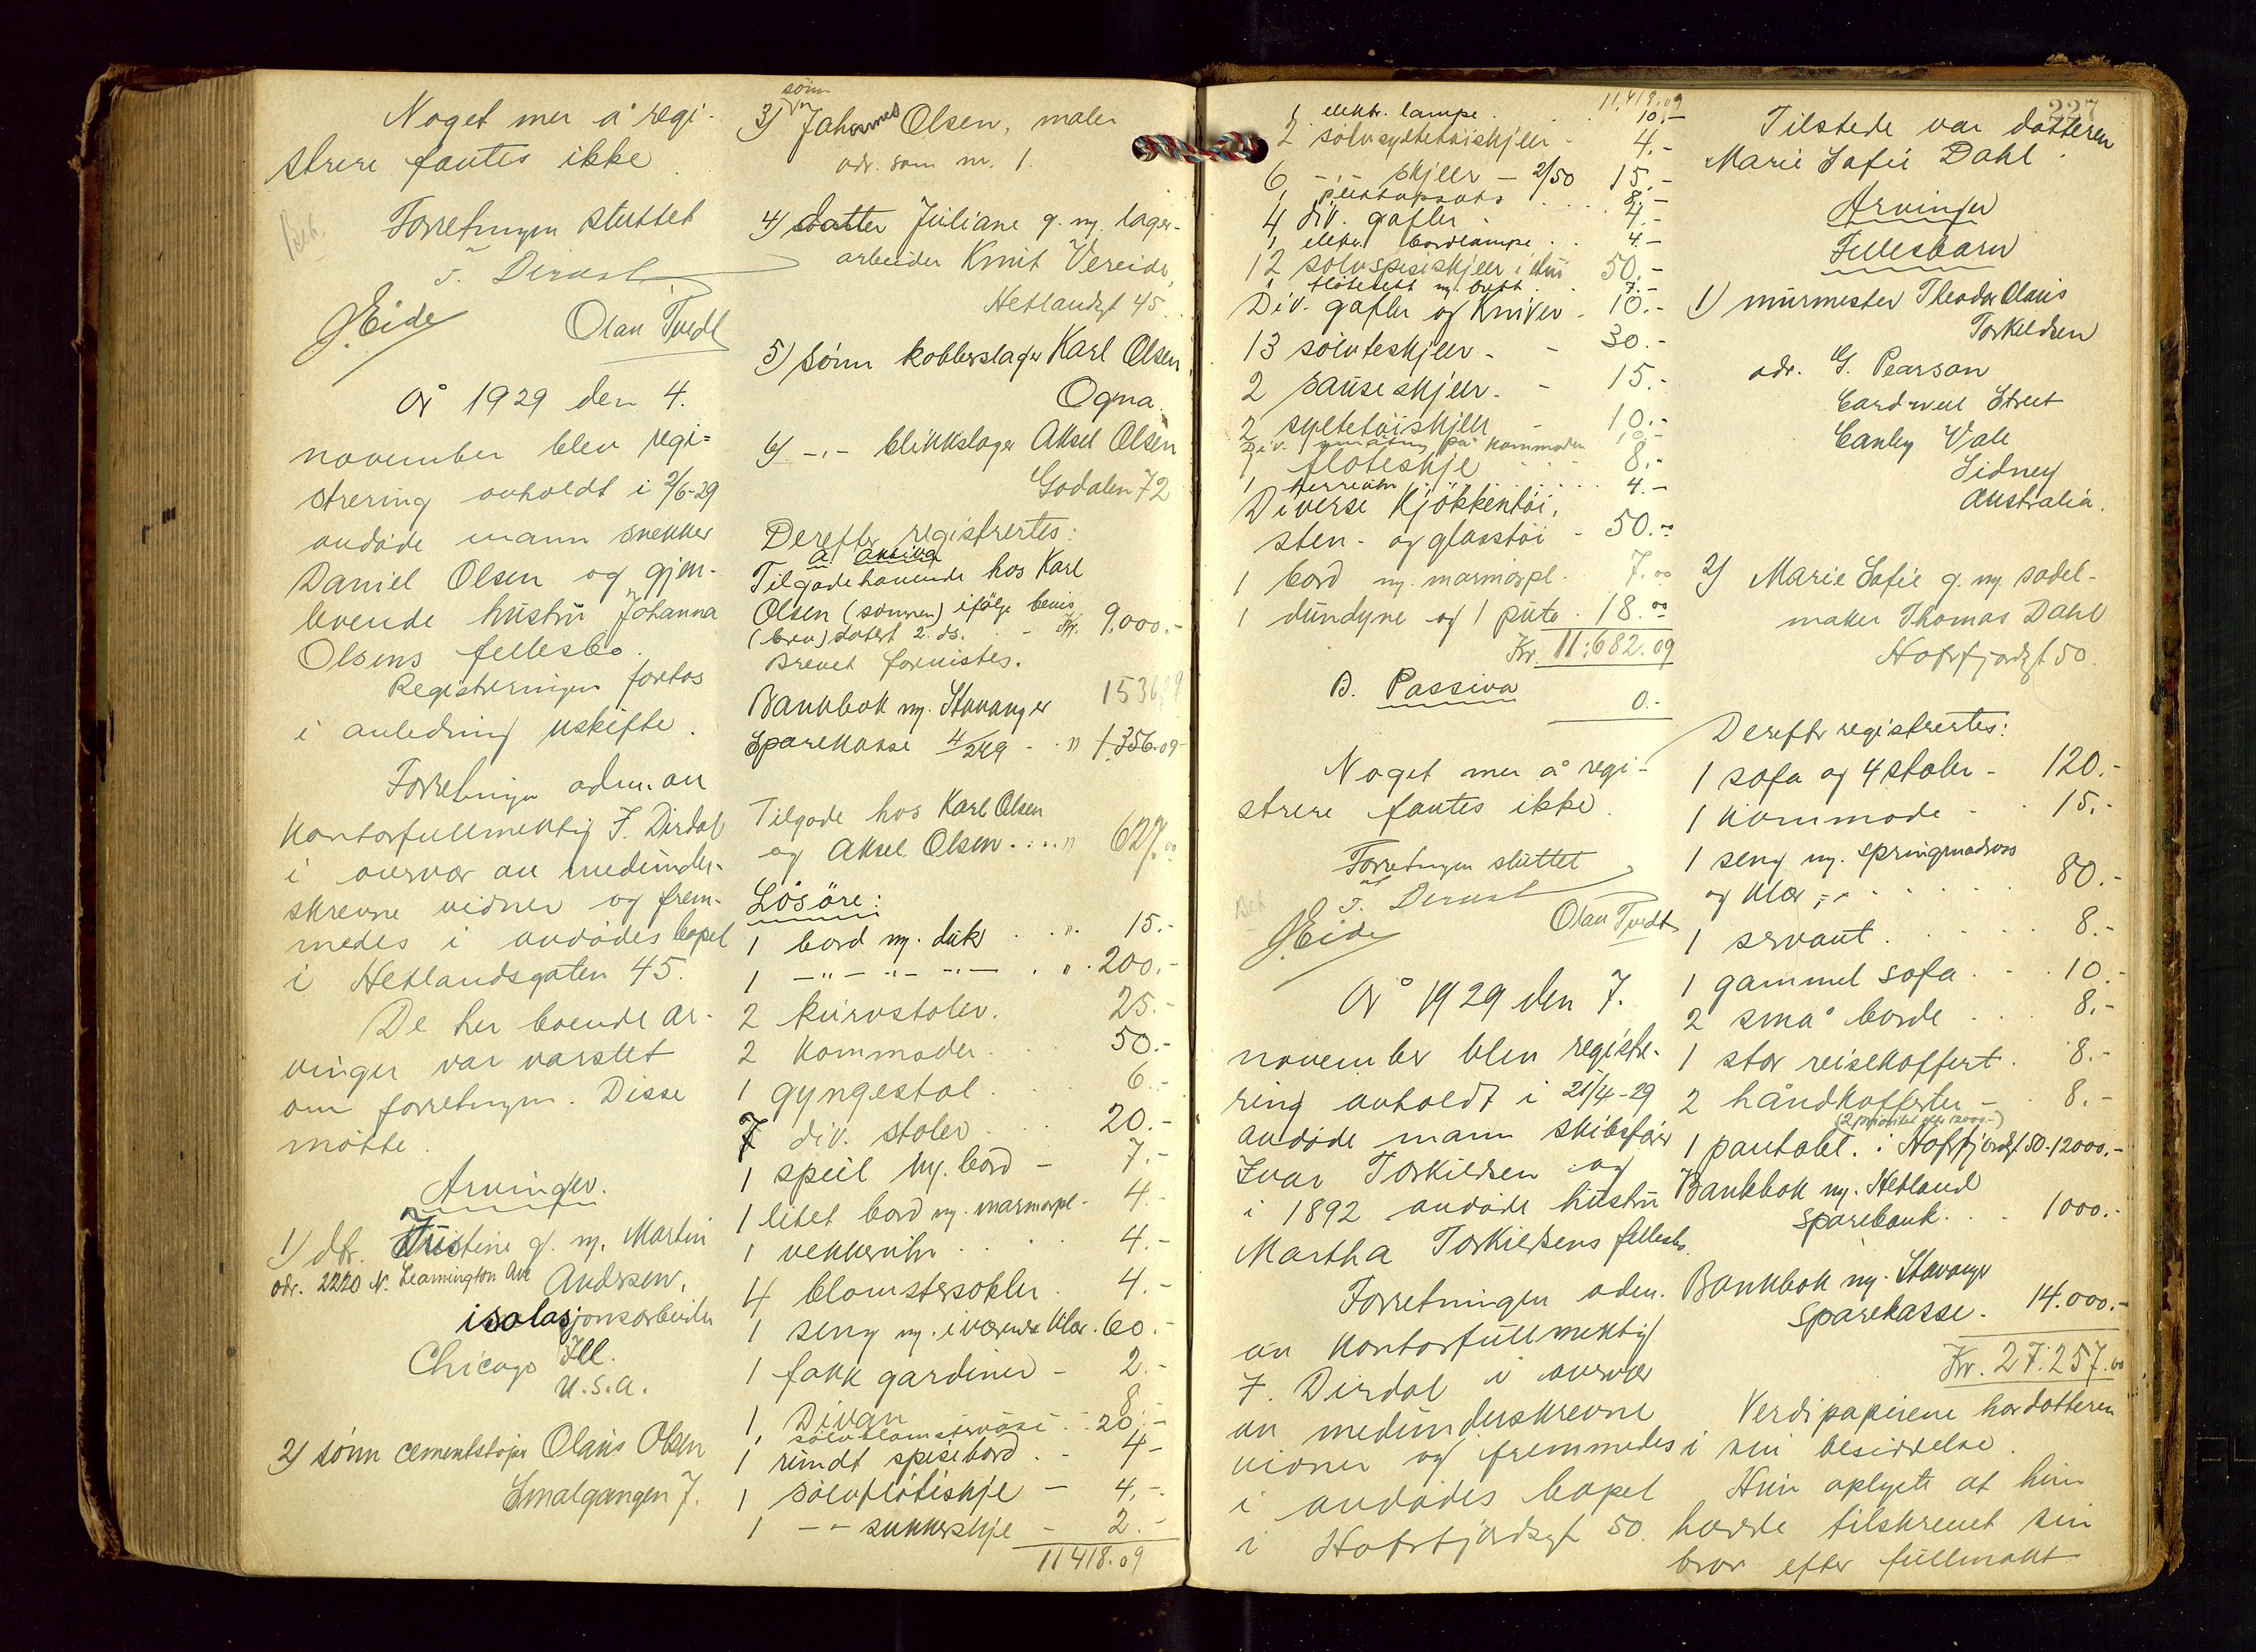 Noget mer å regi-
strere fantes ikke.
Forretningen sluttet
F. Dirdal
J. Eide
Olav Tvedt
År 1929 den 4.
november blev regi-
strering avholdt i 2/6-29
avdøde mann snekker
Daniel Olsen og gjen-
levende hustru Johanna
Olsens fellesbo.
Registreringen foretas
i anledning uskifte.
Forretningen adm. av
kontorfullmektig F. Dirdal
i overvær av medunder-
skrevne vidner og frem-
medes i avdødes bopel
i Hetlandsgaten 45.
De her boende ar-
vinger var varslet
om forretningen. Disse
møtte.
Arvinger.
1) dtr. Kristine g. m. Martin
adr. 2220 N. Leamington Ave Andersen,
isolasjonsarbeider
Chicago Ill.
U.S.A.
2) sønn cementstøper Olaus Olsen
Smalgangen 7.
sønn
3) Johannes Olsen, maler
adr. som nr. 1.
4) datter Juliane g. m. lager-
arbeider Knut Vereide,
Hetlandsgt 45.
5) sønn kobberslager Karl Olsen,
Ogna.
6) -,- blikkslager Aksel Olsen
Godalen 72
Derefter registrertes:
A. Aktiva
Tilgodehavende hos Karl
Olsen (sønnen) ifølge bevis
(brev) datert 2. ds. - Kr. 9.000.-
Brevet forevistes.
Bankbok m. Stavanger
Sparekasse 4/249 - " 1.356.09
Tilgode hos Karl Olsen
og Aksel Olsen . . . " 627.00
Løsøre:
1 bord m. duk . . " 15.-
1 -"- -"- -"- . " 200.-
2 kurvstoler. 25.-
2 kommoder . . 50.-
1 gyngestol . . 6.-
7 div. stoler . . 20.-
1 speil m. bord - 7.-
1 litet bord m. marmorpl. 4.-
1 vekkerur . . . 4.-
4 blomstersokler . 4.-
1 seng m. iværende klær. 60.-
1 fakk gardiner - 2.-
1 Divan 8.-
1 sølvblomstervase . . 20.-
1 rundt spisebord . - 4.-
1 sølvfløteskje - 4.-
1 -"- sukkerskje - 2.-
11418.09
227
11.418.09
1 elektr. lampe . . 10.-
2 sølvsyltetøiskjeer - 4.-
6 -"- skjeer - 2/50 15.-
8.-
4 div. gafler . 4.-
1 elektr. bordlampe . . 4.-
12 sølvspiseskjeer i etui 50.-
1 fløtesett m. brett . 7.-
Div. gafler og kniver - 10.-
13 sølvteskjeer - - 30.-
2 sauseskjeer. - 15.-
2 syltetøiskjeer - 10.-
Div. småting på kommoden 10.-
1 fløteskje . . . 8.-
1 herreur . . . . 4.-
Diverse kjøkkentøi,
sten- og glasstøi - 50.00
1 bord m. marmorpl. 7.00
1 dundyne og 1 pute 18.00
Kr. 11.682.09
B. Passiva 0.-
Noget mer å regi-
strere fantes ikke.
Forretningen sluttet
F. Dirdal
J. Eide
Olav Tvedt
År 1929 den 7.
november blev registre-
ring avholdt i 21/4-29
avdøde mann skibsfører
Ivar Torkildsen og
i 1892 avdøde hustru
Martha Torkildsens fellesbo.
Forretningen adm.
av kontorfullmektig
F. Dirdal i overvær
av medunderskrevne
vidner og fremmedes
i avdødes bopel
i Hafrsfjordsgt 50.
Tilstede var datteren
Marie Sofie Dahl.
Arvinger
Fellesbarn
1) murmester Theodor Olaus
Torkildsen
adr. G. Pearson
Cardwell Street
Canley Vale
Sidney
Australia.
2) Marie Sofie g. m. sadel-
maker Thomas Dahl
Hafrsfjordsgt 50.
Derefter registrertes:
1 sofa og 4 stoler - 120.-
1 kommode - . 15.-
1 seng m. springmadrass
og klær - . . . . 80.-
1 servant . . . . 8.-
1 gammel sofa . - . 10.-
2 små borde . . . 8.-
1 stor reisekoffert . 8.-
2 håndkofferter - . 8.-
(2 prioritet efter 12000.-)
1 pantobl. i Hafrsfjordsgt 50 - 12000.-
Bankbok m. Hetland
Sparebank . . . 1000.-
Bankbok m. Stavanger
Sparekasse . 14.000.-
Kr. 27.257.00
Verdipapirene har datteren
i sin besiddelse.
Hun oplyste at hun
hadde tilskrevet sin
bror efter fullmakt